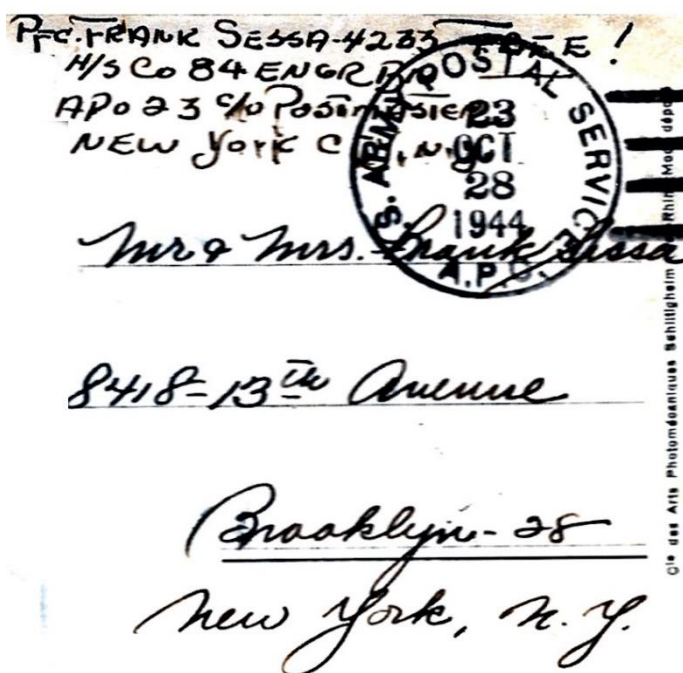 Pfc. FRANK SESSA-4233 FREE!
H/S Co 84 ENGR
APO 23 c/o Postmaster
NEW York C , N.Y.
U.S. ARMY POSTAL SERVICE
23
OCT
28
1944
A.P.O.
Mr & Mrs. Frank Sessa
8418-13th Avenue
Brooklyn-28
New York, N.Y.
Cie des Arts Photomécaniques Schiltigheim Rhin